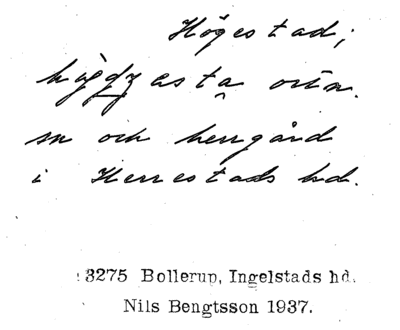 Högestad;
sn och herrgård
i Herrestads hd.
3275 Bollerup, Ingelstads hd.
Nils Bengtsson 1937.